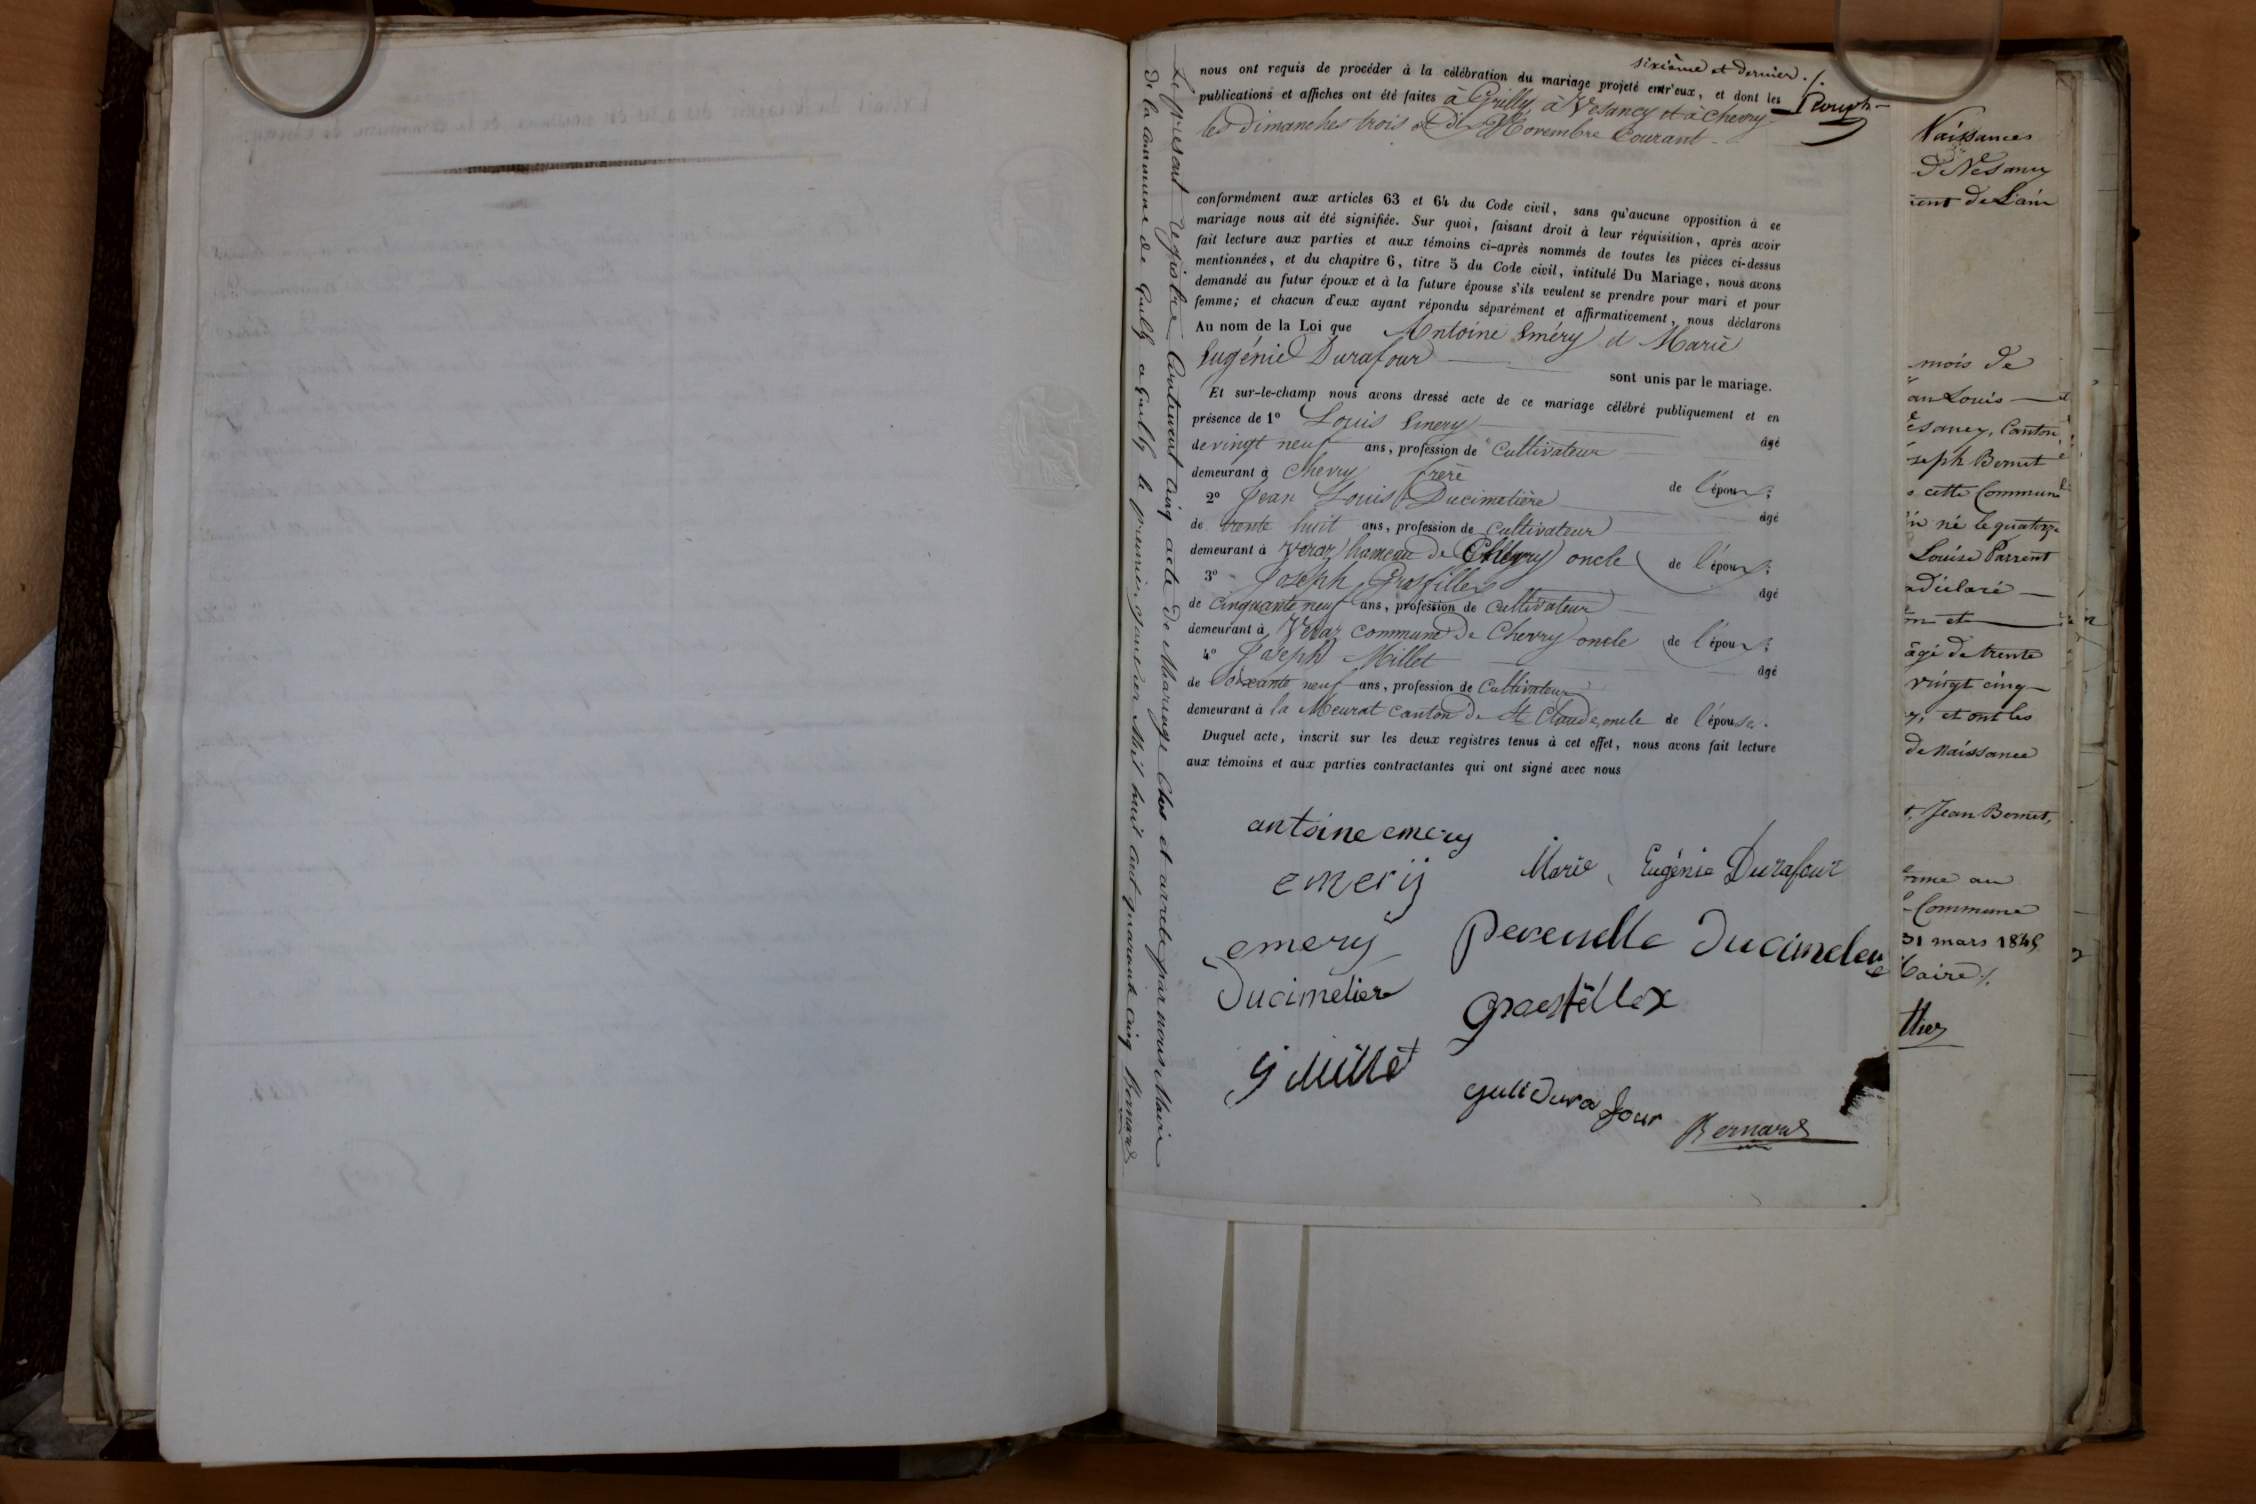 sixième et dernier ./.
nous ont requis de procéder à la célébration du mariage projeté entr'eux, et dont les
publications et affiches ont été faites à Grilly, à Vesancy et à Chevry
les Dimanches trois et dix Novembre Courant
conformément aux articles 63 et 64 du Code civil, sans qu'aucune opposition à ce
mariage nous ait été signifiée. Sur quoi, faisant droit à leur réquisition, après avoir
fait lecture aux parties et aux témoins ci-après nommés de toutes les pièces ci-dessus
mentionnées, et du chapitre 6, titre 5 du Code civil, intitulé Du Mariage, nous avons
demandé au futur époux et à la future épouse s'ils veulent se prendre pour mari et pour
femme; et chacun d'eux ayant répondu séparément et affirmativement, nous déclarons
Au nom de la Loi que Antoine Eméry et Marie
Eugénie Durafour
sont unis par le mariage.
Et sur-le-champ nous avons dressé acte de ce mariage célébré publiquement et en
présence de 1° Louis Emery âgé
de vingt neuf ans, profession de Cultivateur
demeurant à Chevry frère de l'époux;
2° Jean Louis Ducimetière âgé
de trente huit ans, profession de cultivateur
demeurant à Veraz hameau de Chevry oncle de l'époux;
3° Joseph Grosfillex âgé
de cinquante neuf ans, profession de cultivateur
demeurant à Veraz commune de Chevry oncle de l'époux;
4° Joseph Millet âgé
de Soixante neuf ans, profession de Cultivateur
demeurant à la Meurat canton de St Claude, oncle de l'épouse.
Duquel acte, inscrit sur les deux registres tenus à cet effet, nous avons fait lecture
aux témoins et aux parties contractantes qui ont signé avec nous
antoine emery
Marie Eugénie Durafour
emerij
emery
perenelle Ducimetier
Ducimetiere
Grosfillex
J Millet
Durafour
Bernard
Le présent registre Contenant cinq acte de Mariage Clos et arreté par nous Maire
de la Commune de Grilly a Grilly le premier janvier Mil huit cent quarante Cinq Bernard
Naissances
De Vesancy
ient de L'ain
mois de
an Louis
esancy, Canton
seph Bernet
cette Commune
né le quatorze
Louise Parrent
a déclaré
on et
âgé de trente
vingt cinq
et ont les
de Naissance
Jean Bernet,
orme au
Commune
31 mars 1845
Maire ./.